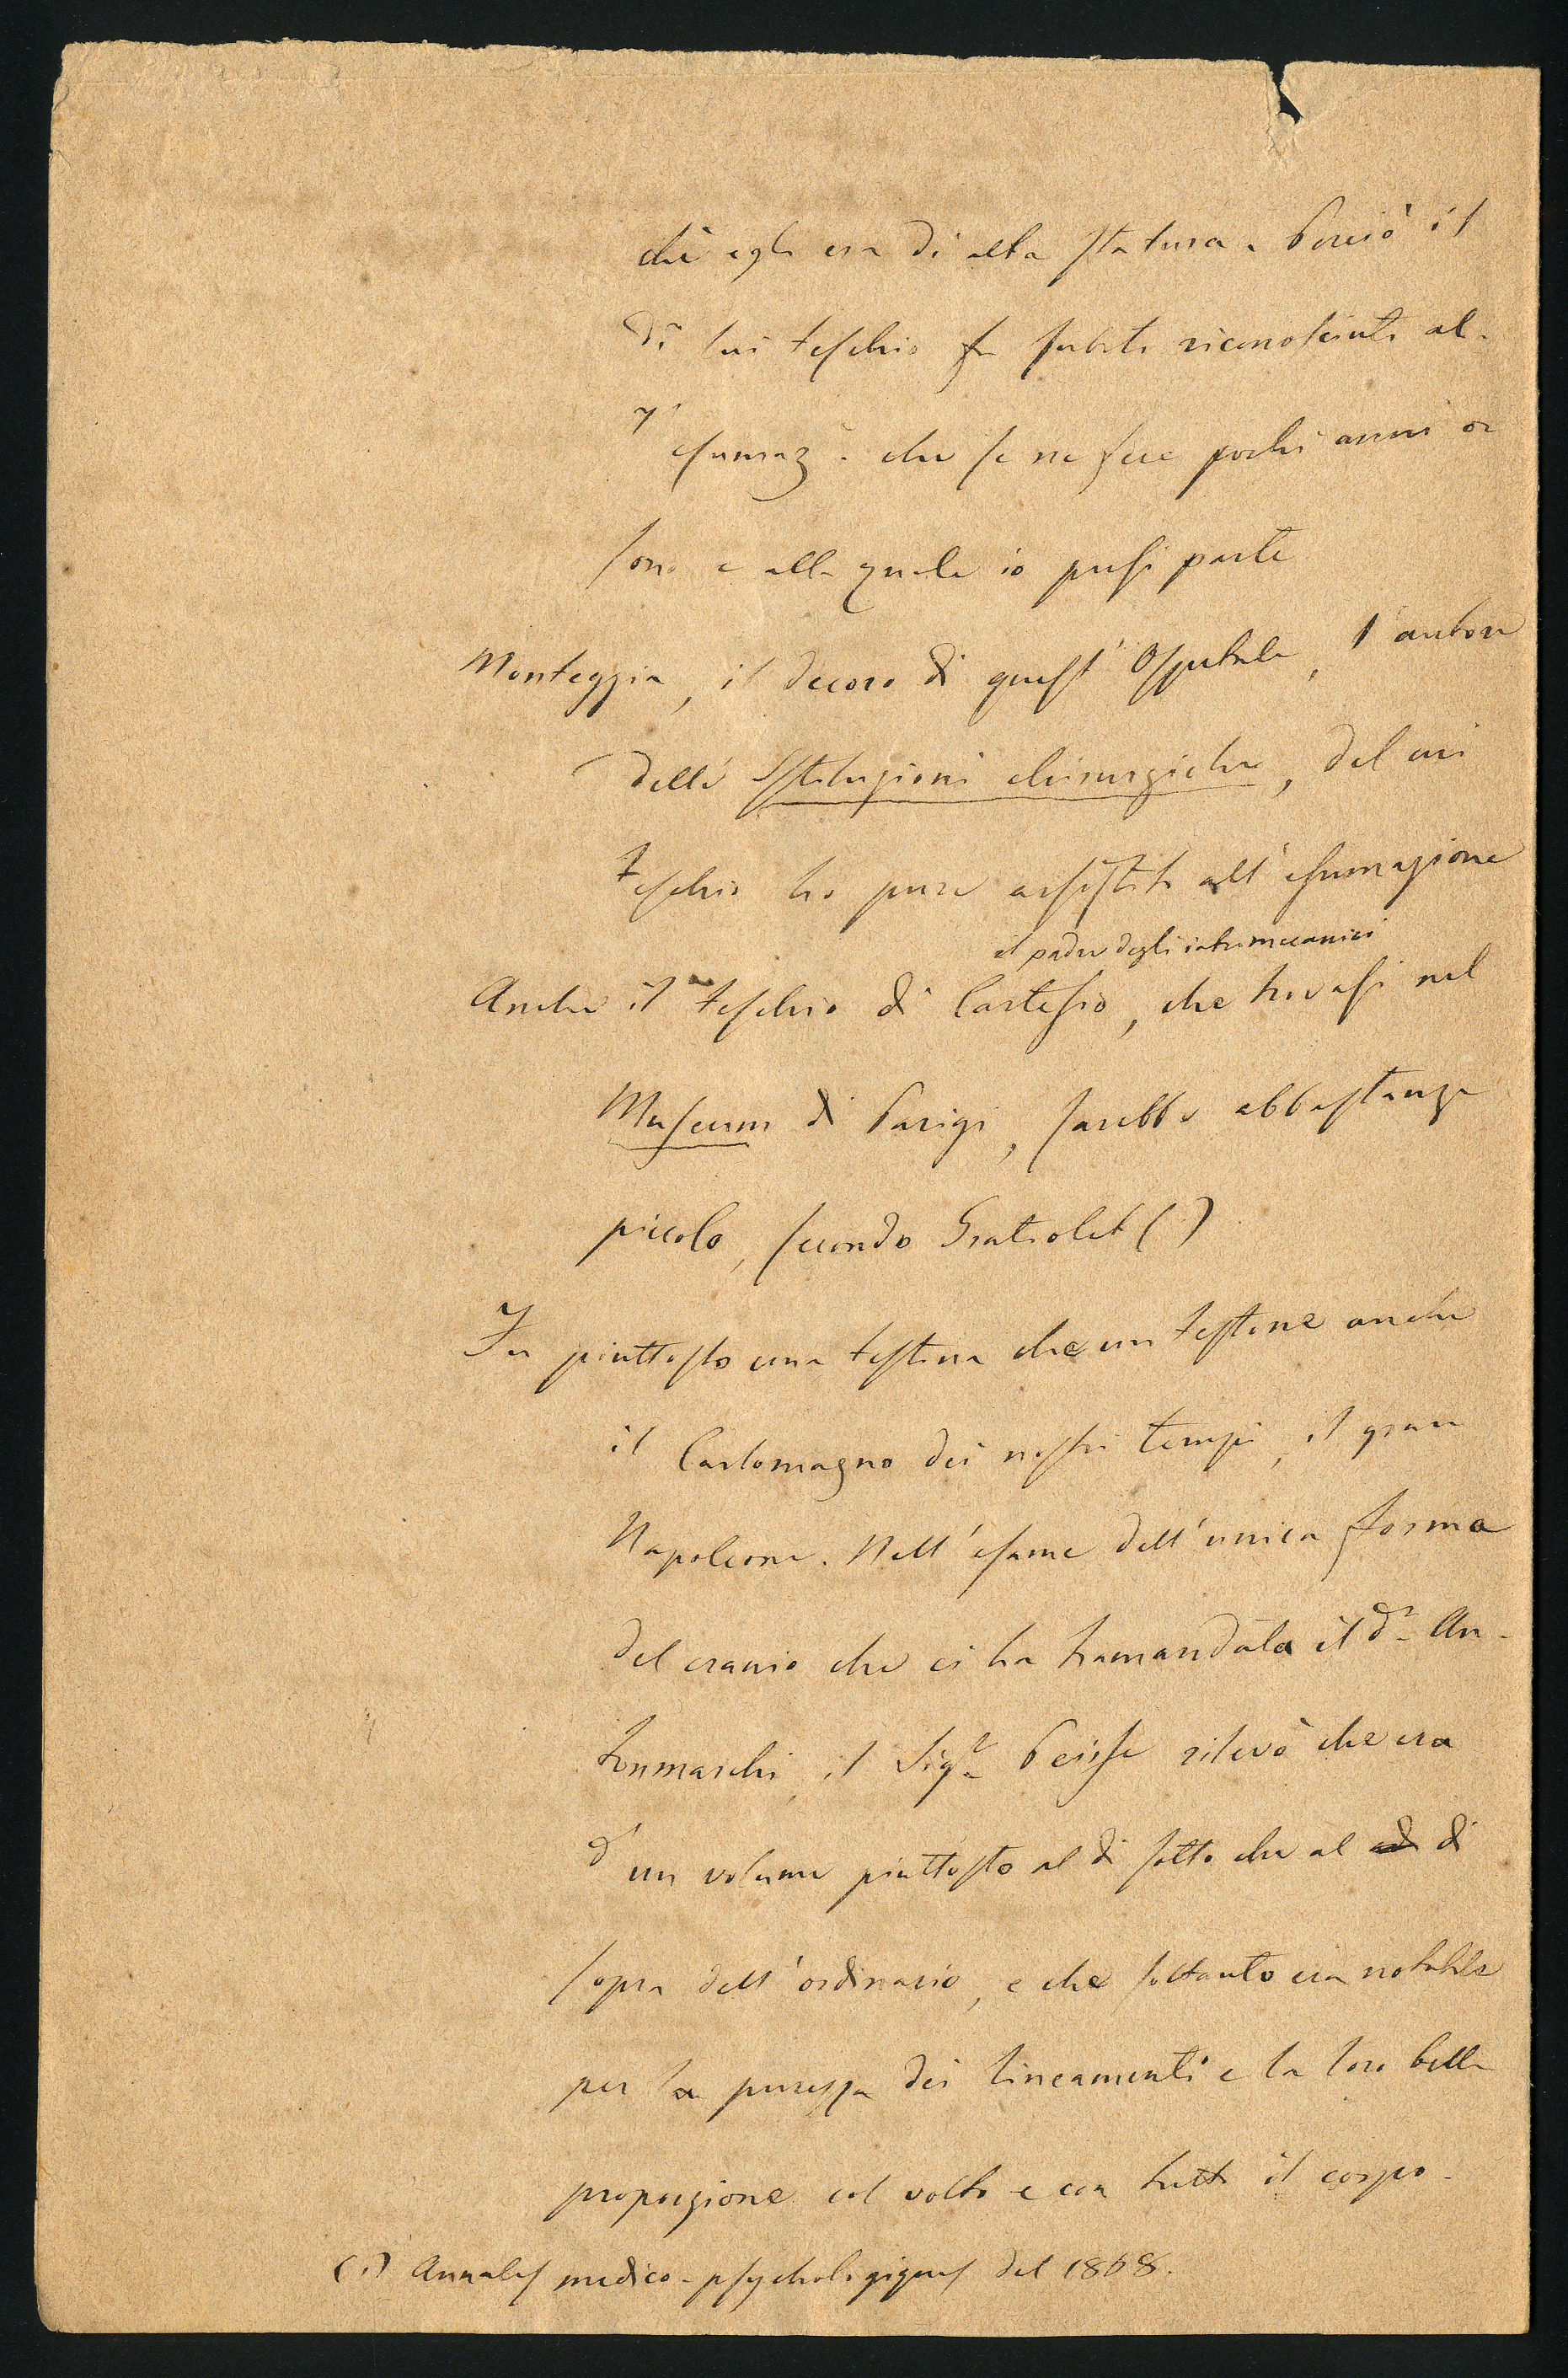 chè egli era di alta statura. Perciò il
di lui teschio fu subito riconosciuto al-
l' esumaz.e che se ne fece pochi anni or
sono e alla quale io presi parte
Monteggia, il decoro di quest' Ospitale, l' autore
delle Istituzioni chirurgiche, del cui
teschio ho pure assistito all' esumazione
il padre degli iatromeccanici
Anche il teschio di Cartesio, che trovasi nel
Museum di Parigi, sarebbe abbastanza
piccolo, secondo Gratiolet (1)
Fu piuttosto una testina che un testone anche
il Carlomagno dei nostri tempi, il gran
Napoleone. Nell' esame dell' unica forma
del cranio che ci ha tramandata il d.r An-
tonmarchi, il Sig.r Peisse rilevò che era
d' un volume piuttosto al di sotto che al di
sopra dell' ordinario, e che soltanto era notabile
per la purezza dei lineamenti e la loro bella
proporzione col volto e con tutto il corpo.
(1) Annales medico-psychologiques del 1858.